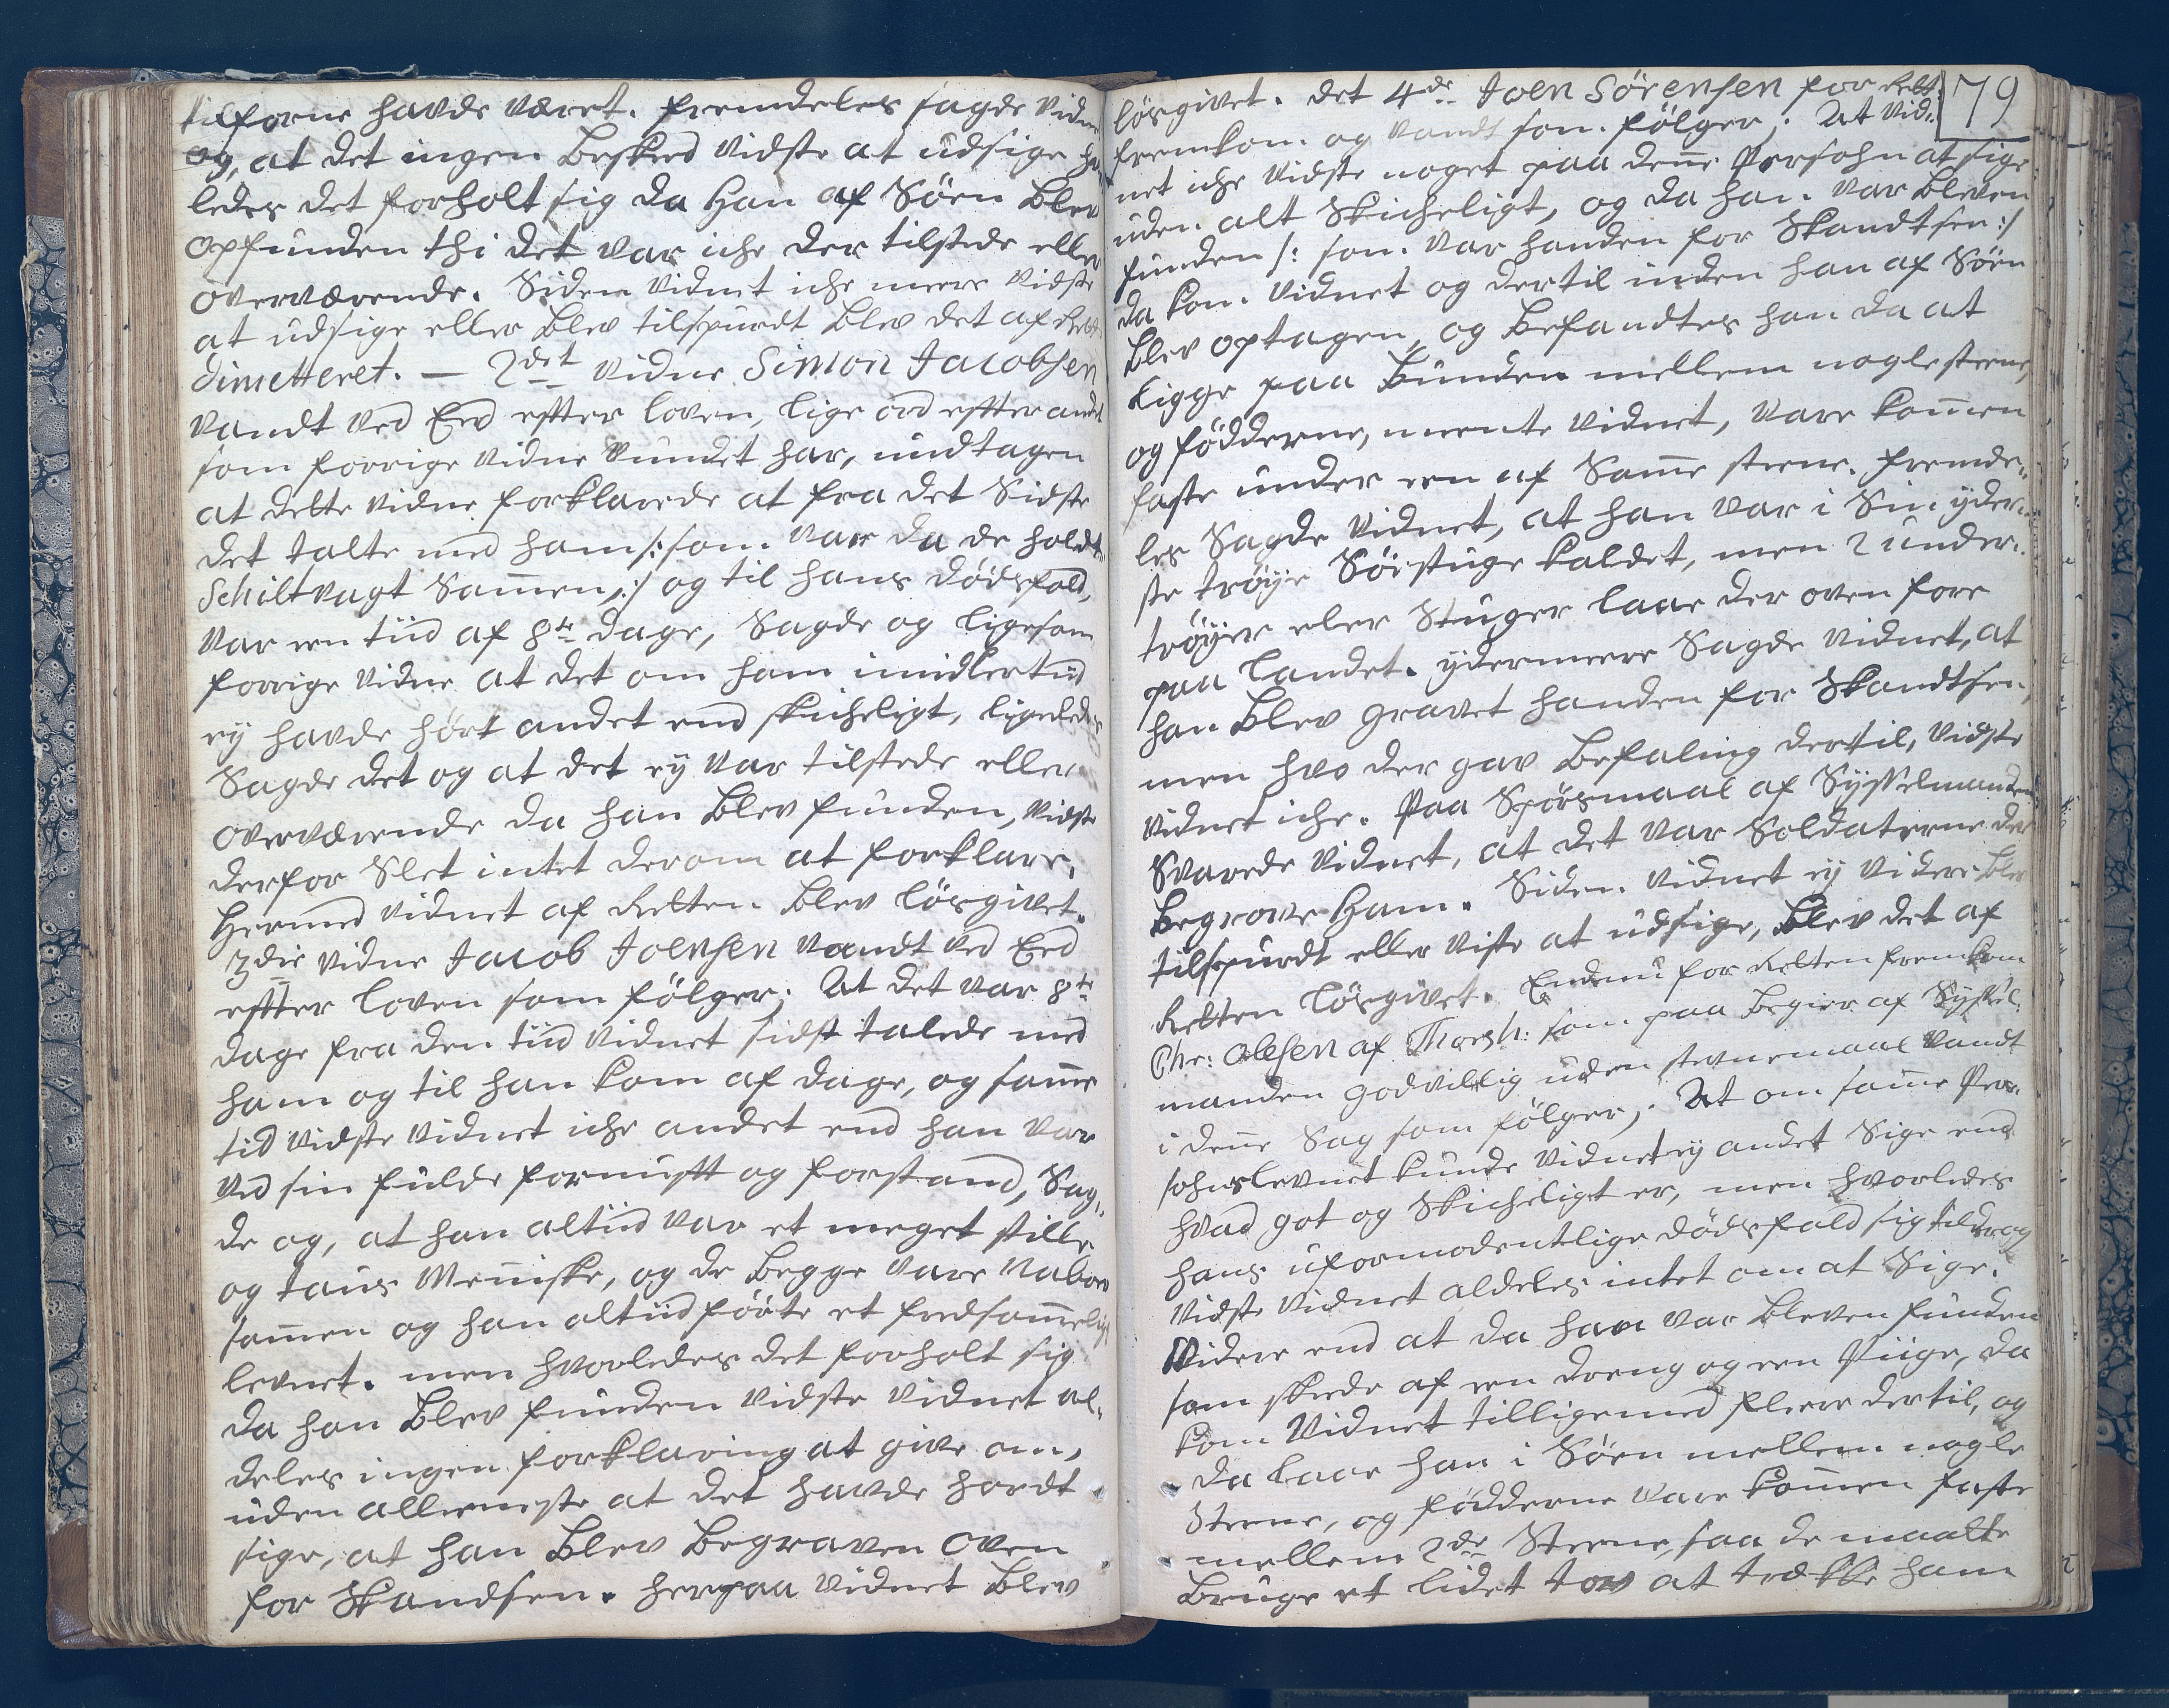 tilforne havde været. fremdeles sagde Vidnet
og, at det ingen Besked vidste at udsige hvor
ledes det forholt sig da Han af Söen Blev
opfunden thi det var iche der tilstede eller
overværende. Siden vidnet iche meere vidste
at udsige eller Blev tilspurdt Blev det af Rett:
dimetteret. — 2det Vidne Simon Jacobsen
vandt ved Eed effter loven, lige ord effter andet
som forrige vidne vundet har, undtagen
at dette vidne forklarede at fra det Sidste
det talte med ham /: som var da de holdt
Schiltvagt Sam̄en, :/ og til hans dödsfald,
var een tiid af 8te dage, Sagde og ligesom
forrige vidne at det om ham imidlertiid
ey havde hört andet end skicheligt, ligeledes
Sagde det og at det ey var tilstede eller
overværende da han Blev funden, vidste
derfor Slet intet derom at forklare,
Hermed vidnet af Retten Blev lösgivet.
3die vidne Jacob Joensen vandt ved Eed
effter loven som fölger: At det var 8te
dage fra den tiid vidnet sidst talede med
ham og til han kom af dage, og sam̄e
tid vidste vidnet iche andet end han var
ved sin fulde fornufft og forstand, Sag¸
de og, at han altiid var et meget stille
og taus Men̄iske, og de Begge vare Naboer
sam̄en og han altiid förte et fredsom̄eligt
levnet. men hvorledes det forholt sig
da han Blev funden vidste vidnet al¸
deles ingen forklaring at give om,
uden alleeneste at det havde hördt
sige, at han Blev Begraven oven
for Skandsen. herpaa vidnet Blev
79
lösgivet. det 4de Joen Sörensen for Rett:
fremkom og vandt som fölger: At vid¸
net iche vidste noget paa den̄e Persohn at sige
uden alt Skicheligt, og da han var Bleven
funden /: som var handen for Skandtsen :/
da kom vidnet og dertil inden han af Söen
Blev optagen, og Befandtes han da at
ligge paa Bunden mellem nogle steene,
og födderne, meente vidnet, vare kom̄en
faste under een af Sam̄e steene. fremde¸
les Sagde vidnet, at han var i Sin yder¸
ste tröye Söistuge kaldet, men 2 under¸
tröyer eler Stuger laae der oven fore
paa landet. ydermeere Sagde vidnet, at
han Blev gravet handen for Skandtsen,
men hvo der gav Befaling dertil, vidste
vidnet iche. Paa Spörsmaal af Sysselmanden
Svarede vidnet, at det var Soldaterne der
Begrove Ham. Siden vidnet ey videre Blev
tilspurdt eller viste at udsige, Blev det af
Retten lösgivet. Endnu for Retten fremkom
Chr: Olesen af Thorsh: som paa Begier af Syssel¸
manden godvillig uden stevnemaal vandt
i den̄e Sag som fölger; At om sam̄e Per¸
sohns levnet kunde vidnet ey andet Sige end
hvad got og Skicheligt er, men hvorledes
hans uformodentlige dödsfald sig tildrog
vidste vidnet aldeles intet om at Sige.
Videre end at da han var Bleven funden
som skede af een dreng og een Piige, da
kom vidnet tilligemed fleere dertil, og
da laae han i Söen mellem nogle
Steene, og födderne vare kom̄en faste
mellem 2de Steene, saa de maatte
Bruge et lidet tov at trække ham